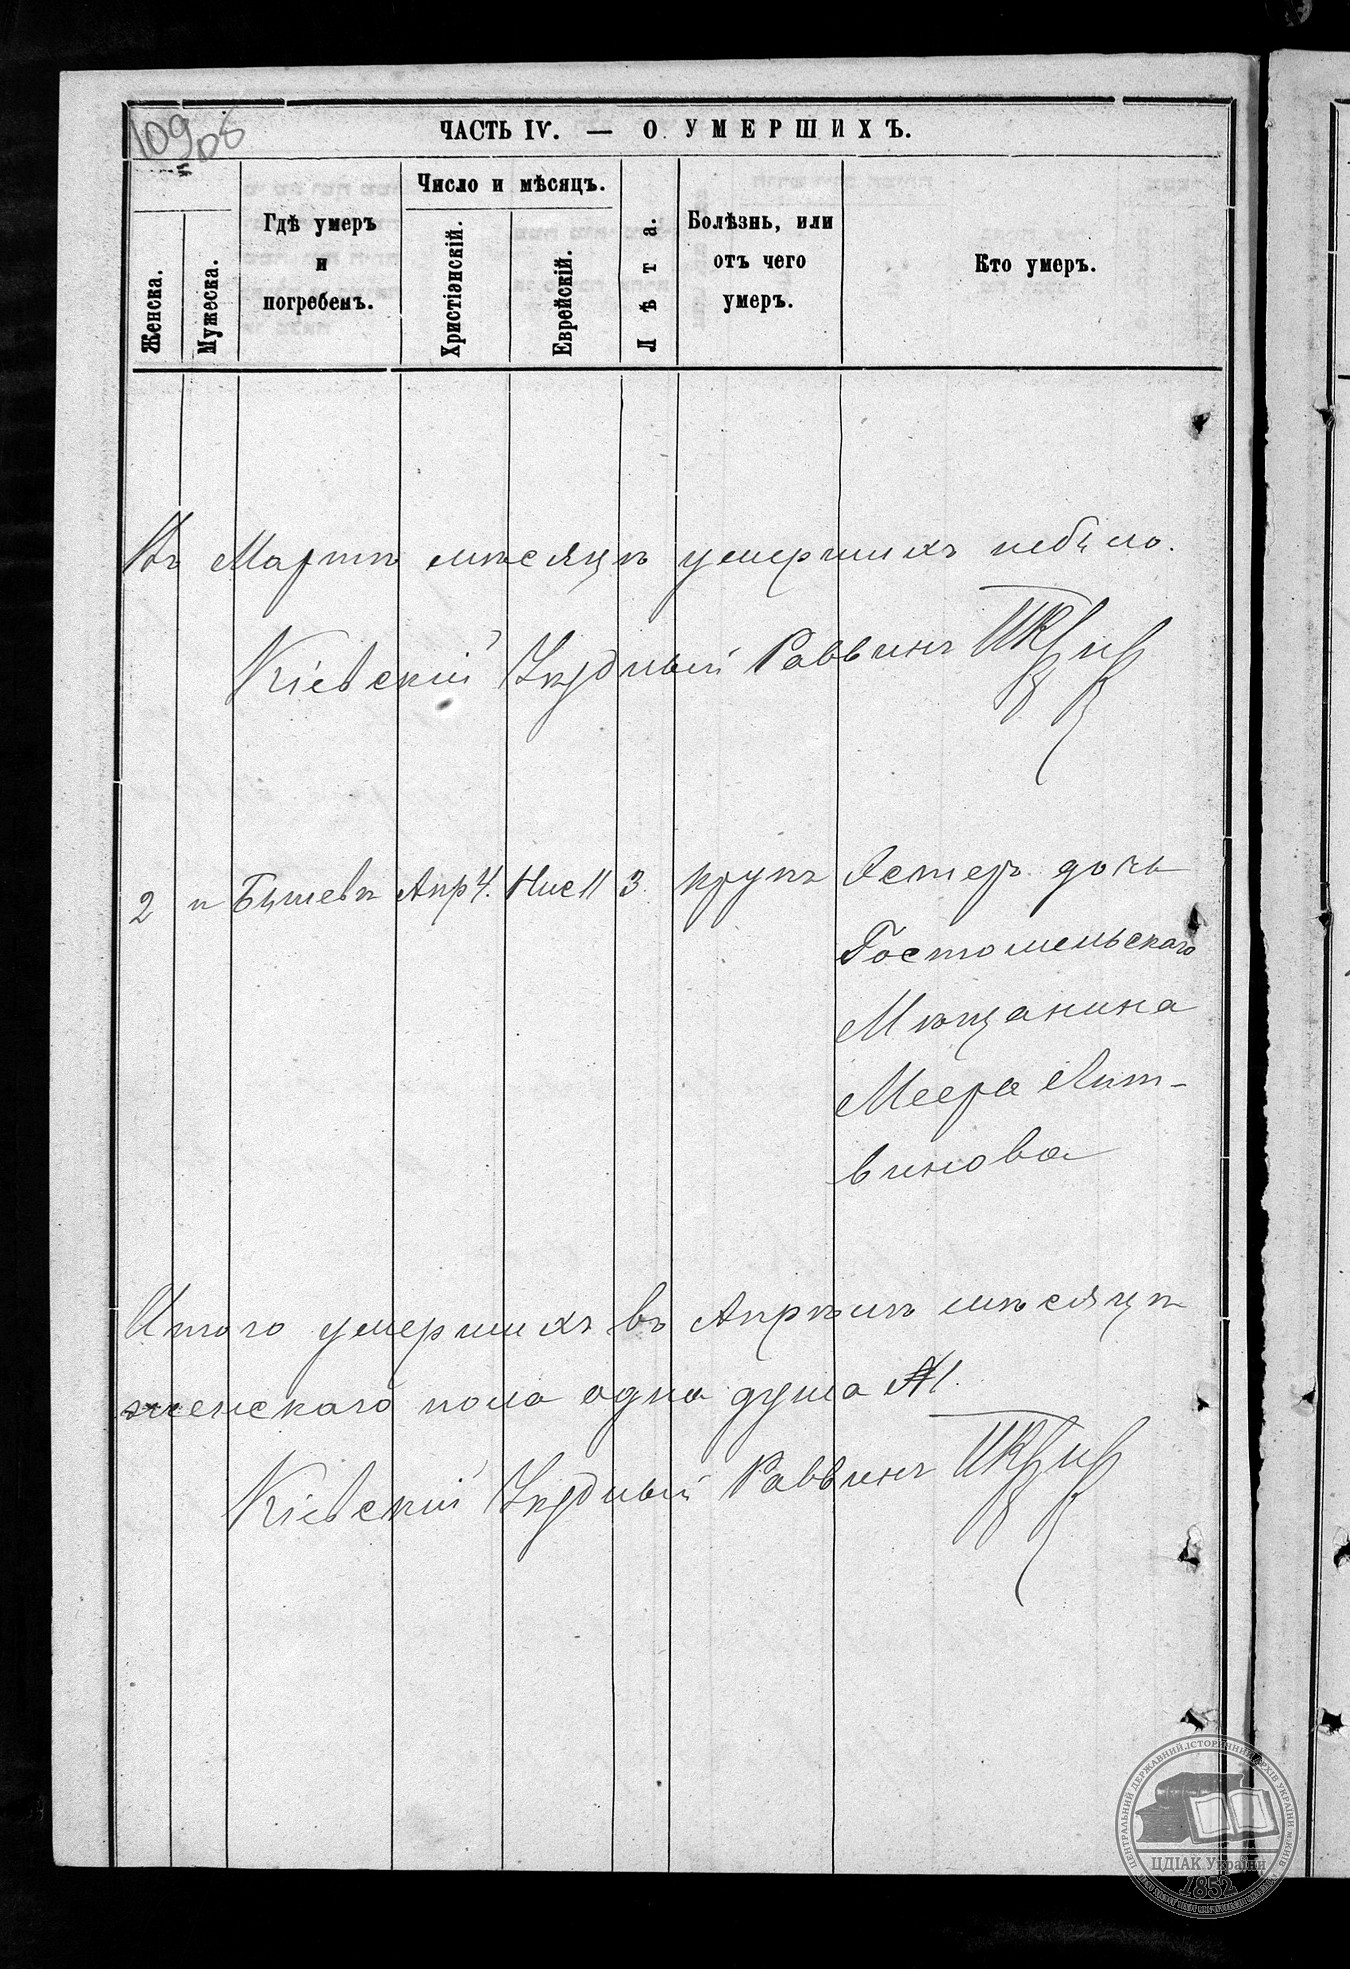 109 об
ЧАСТЬ IV. — О УМЕРШИХЪ.
Женска.
Мужеска.
Гдѣ умеръ
и
погребенъ.
Число и мѣсяцъ.
Христіэнскій.
Еврейскій.
Лѣта.
Болѣзнь, или
отъ чего
умеръ.
Кто умеръ.
Въ Мартѣ мѣсяцѣ умершихъ небыло.
Кіевскій Уѣздный Раввинъ
2 „ Бышевѣ Апр 4. Нис 11 3. крупъ Эстеръ дочь
Гостомельскаго
Мѣщанина
Меера Лит-
винова
Итого умершихъ въ Апрѣлѣ мѣсяцѣ
женскаго пола одна душа №1.
Кіевскій Уѣздный Раввинъ
ЦЕНТРАЛЬНИЙ ДЕРЖАВНИЙ ІСТОРИЧНИЙ АРХІВ УКРАЇНИ м.КИЇВ
ЦДІАК України
1852